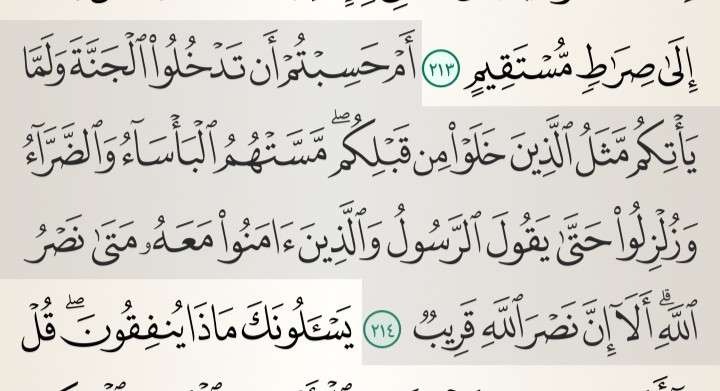 إِلَىٰ صِرَٰطٍ مُّسْتَقِيمٍ ٢١٣ أَمْ حَسِبْتُمْ أَن تَدْخُلُوا۟ ٱلْجَنَّةَ وَلَمَّا
يَأْتِكُم مَّثَلُ ٱلَّذِينَ خَلَوْا۟ مِن قَبْلِكُم ۖ مَّسَّتْهُمُ ٱلْبَأْسَآءُ وَٱلضَّرَّآءُ
وَزُلْزِلُوا۟ حَتَّىٰ يَقُولَ ٱلرَّسُولُ وَٱلَّذِينَ ءَامَنُوا۟ مَعَهُۥ مَتَىٰ نَصْرُ
ٱللَّهِ ۗ أَلَآ إِنَّ نَصْرَ ٱللَّهِ قَرِيبٌ ٢١٤ يَسْـَٔلُونَكَ مَاذَا يُنفِقُونَ ۖ قُلْ